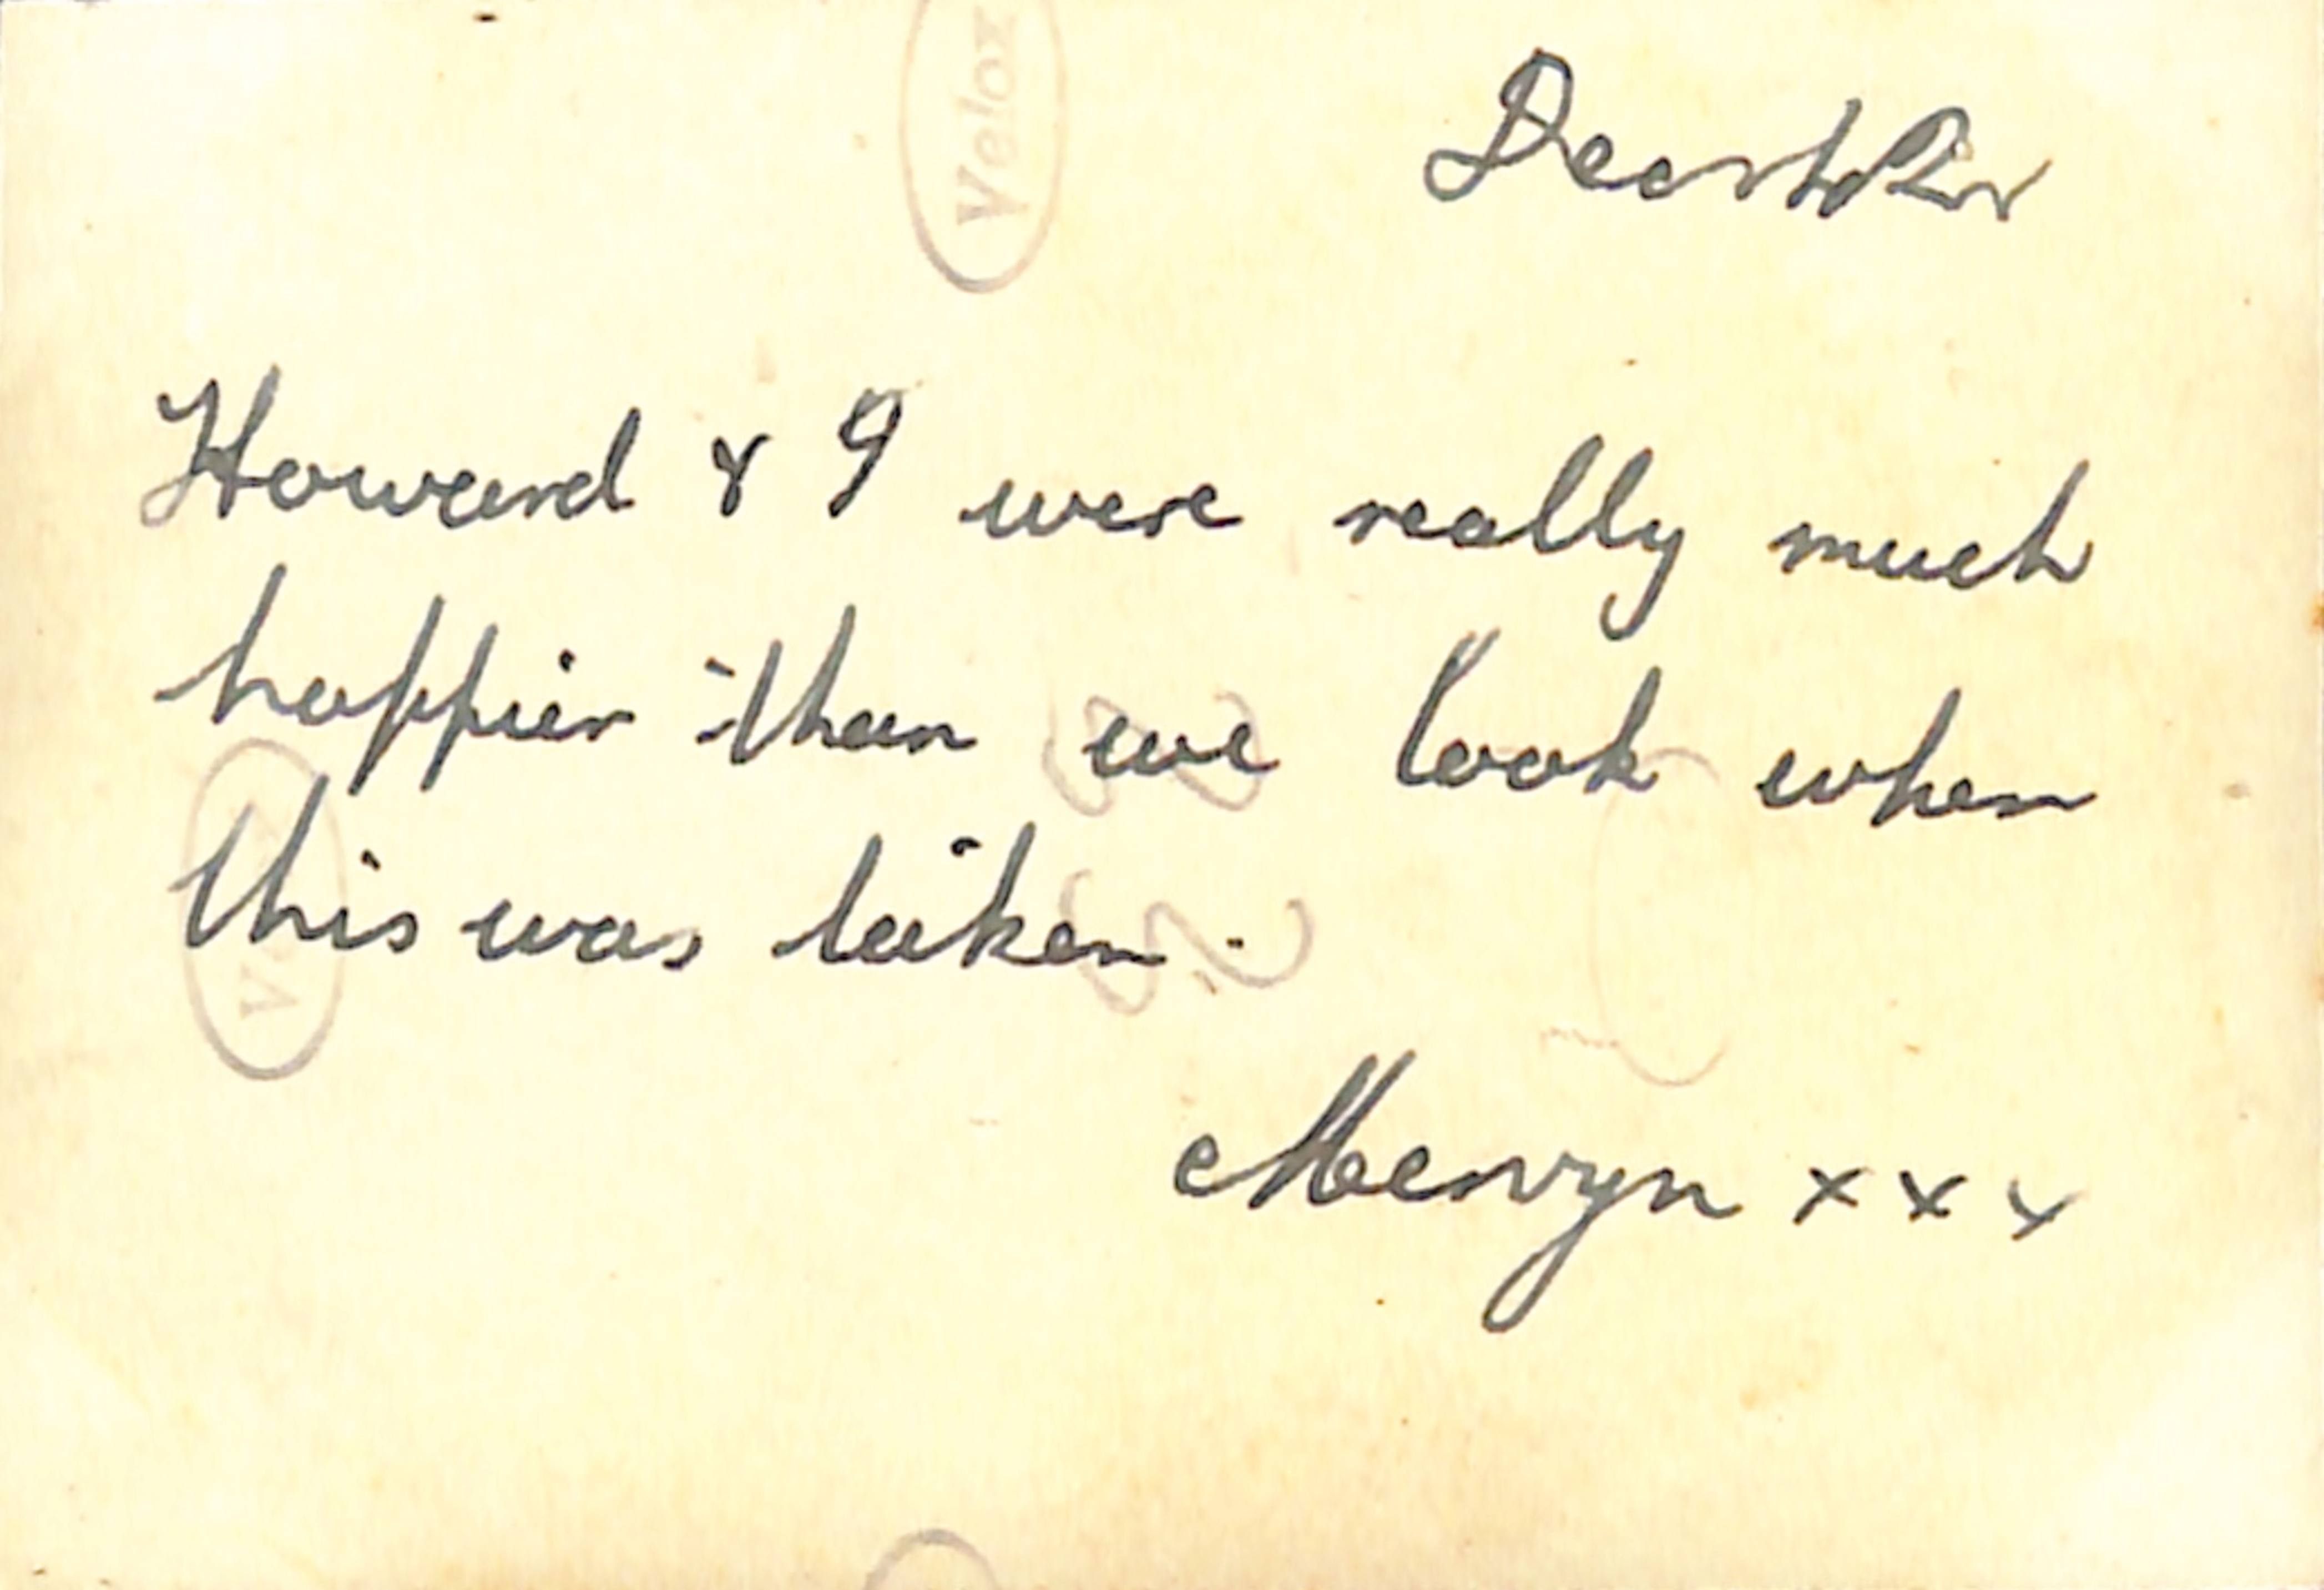 Velox
Howard & I were really much
happier than we look when
this was taken.
Mervyn x x x